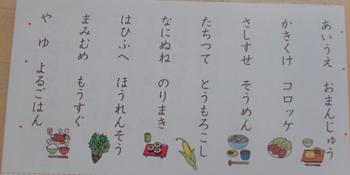 あいうえ おまんじゅう
かきくけ コロッケ
さしすせ そうめん
たちつて とうもろこし
なにぬね のりまき
はひふへ ほうれんそう
まみむめ もうすぐ
や ゆ よるごはん